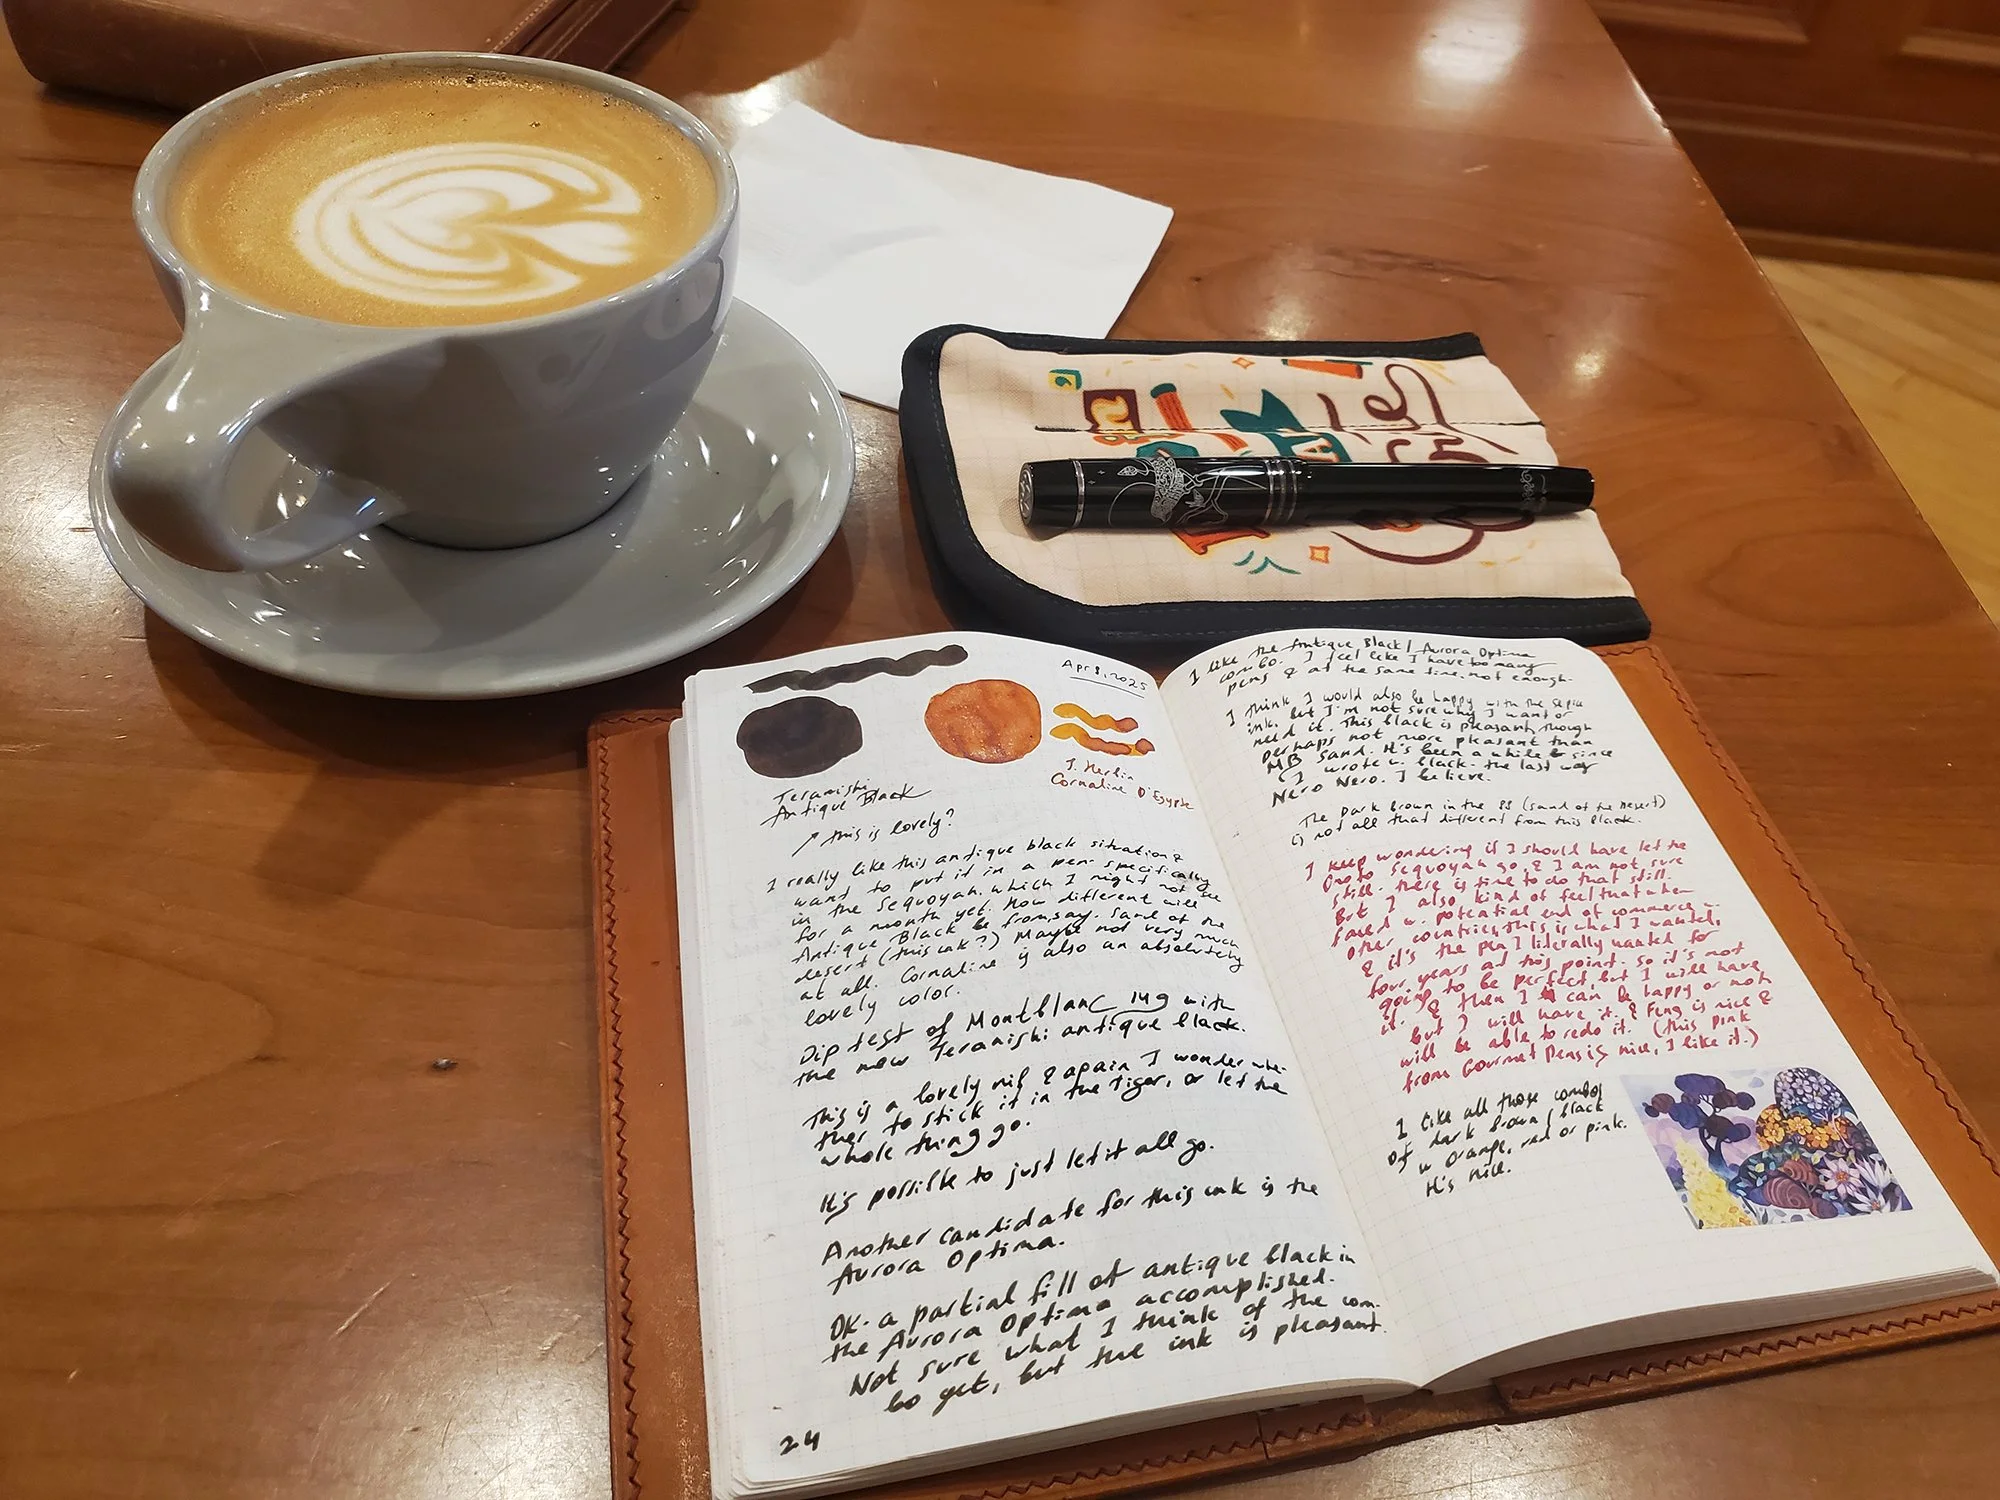 Apr 8, 2025
Teranishi
Antique Black
J. Herbin
Cornaline D'Egypte
↗ this is lovely?
I really like this antique black situation &
want to put it in a pen- specifically
in the Sequoyah. which I might not see
for a month yet. How different will
Antique Black be from, say. Sand of the
desert (this ink?) Maybe not very much
at all. Cornaline is also an absolutely
lovely color.
Dip test of Montblanc 149 with
the new Teranishi antique black.
This is a lovely nib & again I wonder whe-
ther to stick it in the Tiger, or let the
whole thing go.
It's possible to just let it all go.
Another candidate for this ink is the
Aurora Optima.
OK- a partial fill of antique black in
the Aurora Optima accomplished.
Not sure what I think of the com-
bo yet, but the ink is pleasant.
24
I like the Antique Black / Aurora Optima
combo. I feel like I have too many
pens & at the same time, not enough.
I think I would also be happy with the Sepia
ink, but I'm not sure why I want or
need it. This black is pleasant, though
perhaps not more pleasant than
MB Sand. It's been a while since
I wrote w. black- the last was
Nero Nero. I believe.
The Dark Brown in the SS (Sand of the Desert)
is not all that different from this black.
I keep wondering if I should have let the
Onoto Sequoyah go, & I am not sure
still. there is time to do that still.
But I also kind of feel that when
faced w. potential end of commerce w.
other countries, this is what I wanted,
& it's the pen I literally waited for
four years at this point. So it's not
going to be perfect, but I will have
it. & then I can be happy or not
but I will have it. & Feng is nice &
will be able to redo it. (this pink
from Gourmet Pens is nice, I like it.)
I like all those combos
of dark brown / black
w orange, red or pink.
It's nice.